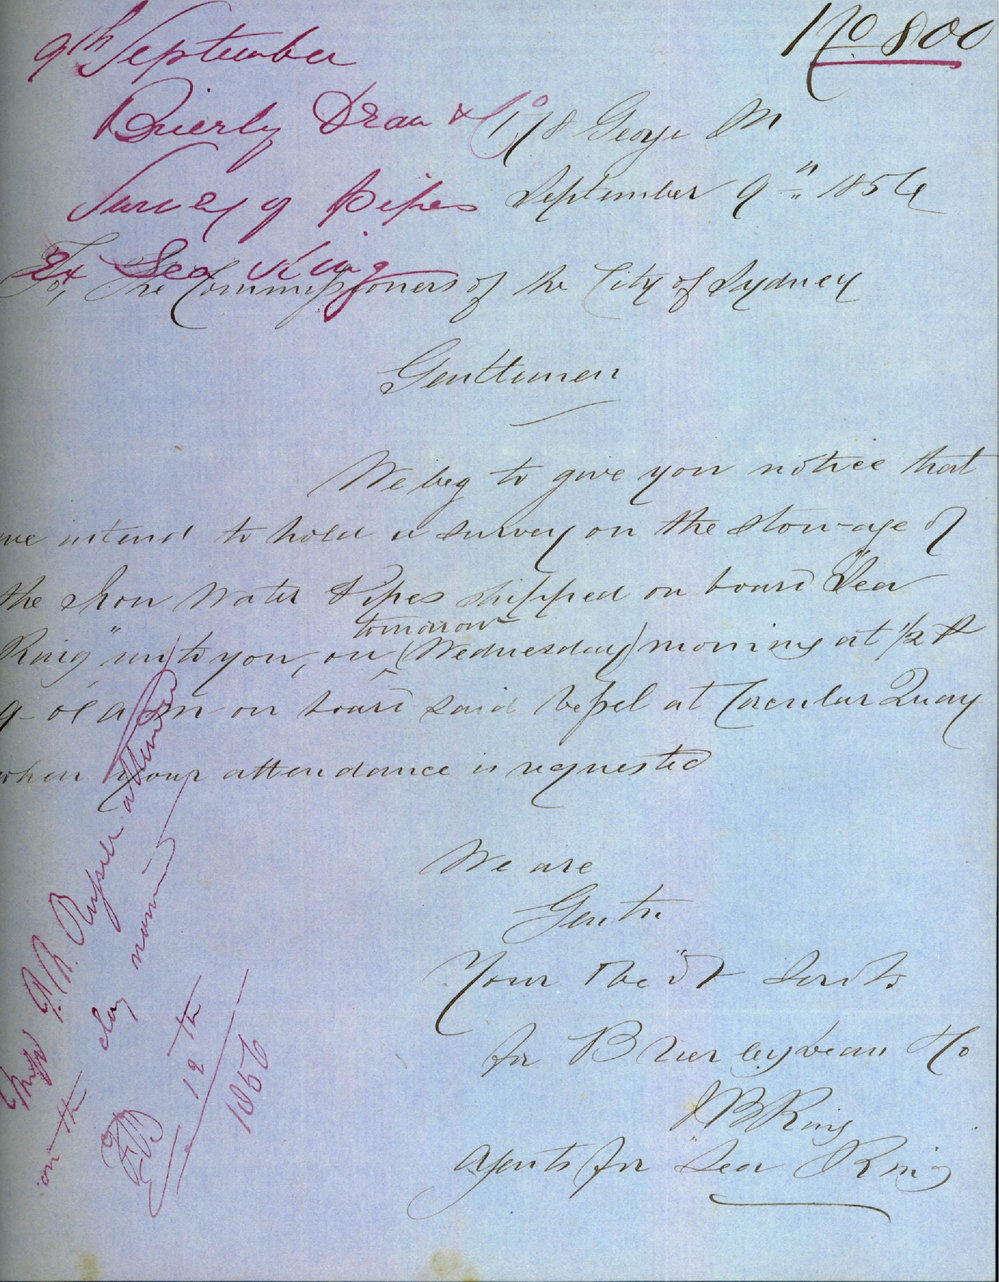 No 800
9th September
Brierly Dean & Co
Survey of Pipes
Ex Sea King
178 George St
September 9th 1856
To, The Commissioners of the City of Sydney
Gentlemen
We beg to give you notice that
we intend to hold a survey on the stowage of
the Iron Water Pipes shipped on board "Sea
King" unto you, on (tomorrow Wednesday) morning at 1/2 p
9 - oC a m on board said Vessel at Circular Quay
when your attendance is requested
We are
Gentn
Your Obedt Servts
for Brierly Dean & Co
J B King
agents for Sea King
Messrs Russell attended
on the day named
12th
1856